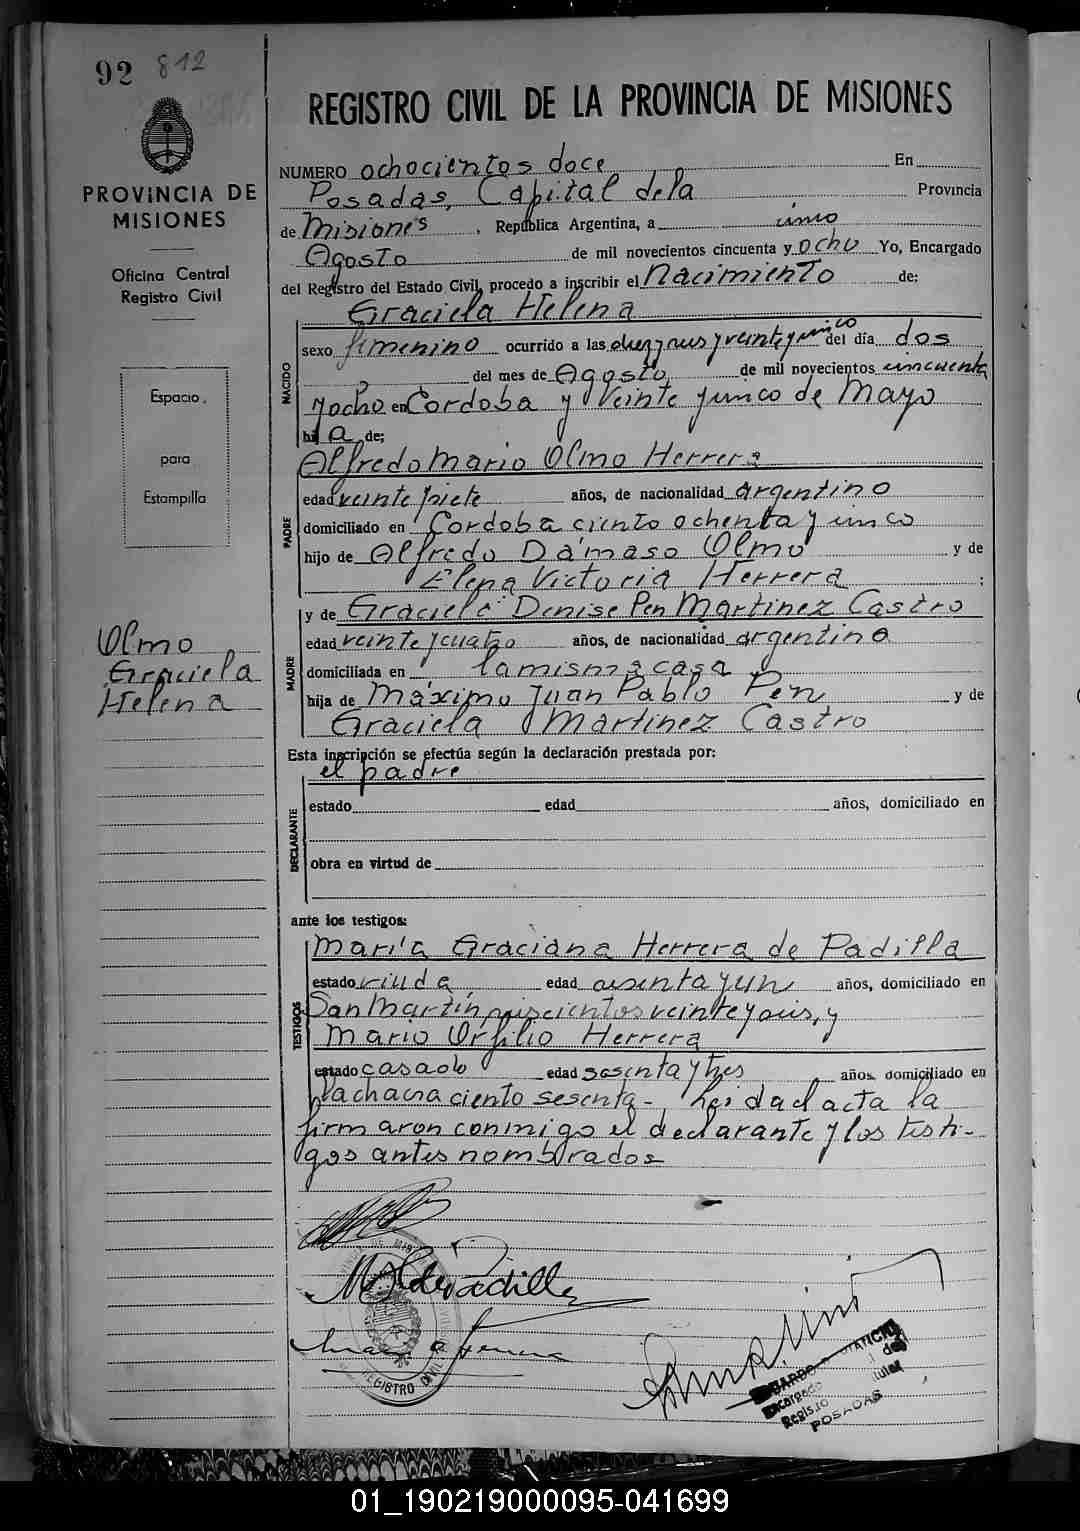 92 812
REGISTRO CIVIL DE LA PROVINCIA DE MISIONES
PROVINCIA DE
MISIONES
Oficina Central
Registro Civil
Espacio
para
Estampilla
Olmo
Graciela
Helena
NUMERO ochocientos doce En
Posadas, Capital de la Provincia
de Misiones, República Argentina, a cinco
Agosto de mil novecientos cincuenta y ocho Yo, Encargado
del Registro del Estado Civil, procedo a inscribir el Nacimiento de:
Graciela Helena
NACIDO
sexo femenino ocurrido a las diez y seis y veinte y cinco del día dos
del mes de Agosto de mil novecientos cincuenta
y ocho en Córdoba y Veinte y cinco de Mayo
hija de;
Alfredo Mario Olmo Herrera
PADRE
edad veinte y siete años, de nacionalidad argentino
domiciliado en Córdoba ciento ochenta y cinco
hijo de Alfredo Dámaso Olmo y de
Elena Victoria Herrera ;
y de Graciela Denise Pen Martinez Castro
MADRE
edad veinte y cuatro años, de nacionalidad argentina
domiciliada en la misma casa
hija de Máximo Juan Pablo Pen y de
Graciela Martinez Castro
Esta inscripción se efectúa según la declaración prestada por:
el padre
DECLARANTE
estado edad años, domiciliado en
obra en virtud de
ante los testigos:
TESTIGOS
María Graciana Herrera de Padilla
estado viuda edad sesenta y un años, domiciliado en
San Martín seiscientos veinte y seis, y
Mario Herrera
estado casado edad sesenta y tres años, domiciliado en
la chacra ciento sesenta - leída el acta la
firmaron conmigo el declarante y los testi-
gos antes nombrados
M H de Padilla
REGISTRO CIVIL
Encargado
Registro
POSADAS
01_190219000095-041699